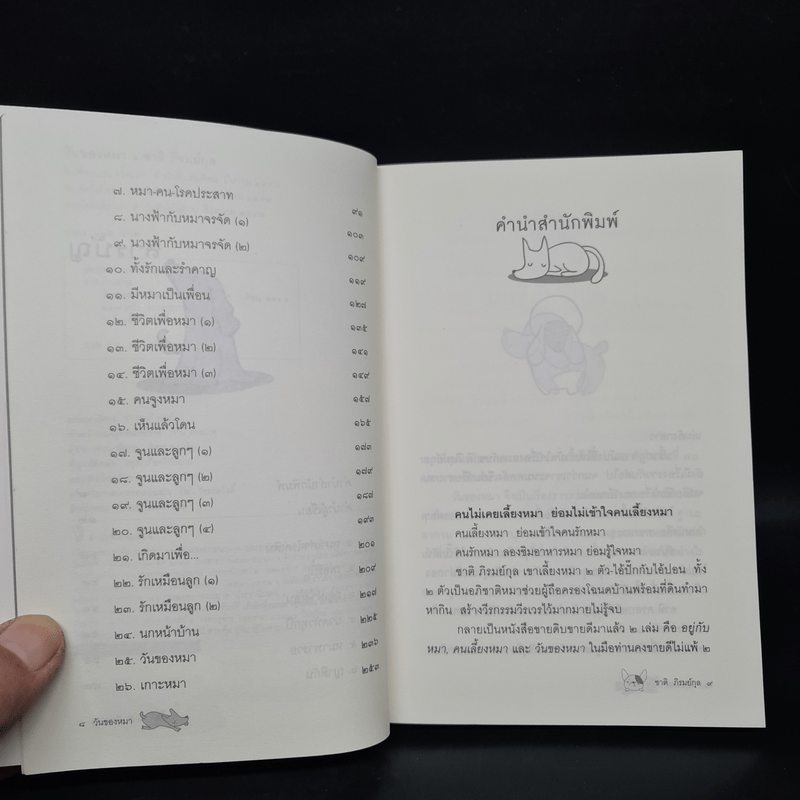 ๗. หมา-คน-โรคประสาท ๙๑
๘. นางฟ้ากับหมาจรจัด (๑) ๑๐๓
๙. นางฟ้ากับหมาจรจัด (๒) ๑๐๙
๑๐. ทั้งรักและรำคาญ ๑๑๙
๑๑. มีหมาเป็นเพื่อน ๑๒๗
๑๒. ชีวิตเพื่อหมา (๑) ๑๓๕
๑๓. ชีวิตเพื่อหมา (๒) ๑๔๑
๑๔. ชีวิตเพื่อหมา (๓) ๑๔๙
๑๕. คนจูงหมา ๑๕๗
๑๖. เห็นแล้วโดน ๑๖๕
๑๗. จูนและลูกๆ (๑) ๑๗๓
๑๘. จูนและลูกๆ (๒) ๑๗๙
๑๙. จูนและลูกๆ (๓) ๑๘๗
๒๐. จูนและลูกๆ (๔) ๑๙๓
๒๑. เกิดมาเพื่อ... ๒๐๑
๒๒. รักเหมือนลูก (๑) ๒๐๙
๒๓. รักเหมือนลูก (๒) ๒๑๗
๒๔. นกหน้าบ้าน ๒๒๕
๒๕. วันของหมา ๒๓๖
๒๖. เกาะหมา ๒๕๓
๘ วันของหมา
คำนำสำนักพิมพ์
คนไม่เคยเลี้ยงหมา ย่อมไม่เข้าใจคนเลี้ยงหมา
คนเลี้ยงหมา ย่อมเข้าใจคนรักหมา
คนรักหมา ลองชิมอาหารหมา ย่อมรู้ใจหมา
ชาติ ภิรมย์กุล เขาเลี้ยงหมา ๒ ตัว-ไอ้ปุ๊กกับไอ้ปอน ทั้ง
๒ ตัวเป็นอภิชาติหมาช่วยผู้ถือครองโฉนดบ้านพร้อมที่ดินทำมา
หากิน สร้างวีรกรรมวีรเวรไว้มากมายไม่รู้จบ
กลายเป็นหนังสือขายดิบขายดีมาแล้ว ๒ เล่ม คือ อยู่กับ
หมา, คนเลี้ยงหมา และ วันของหมา ในมือท่านคงขายดีไม่แพ้ ๒
ชาติ ภิรมย์กุล ๙